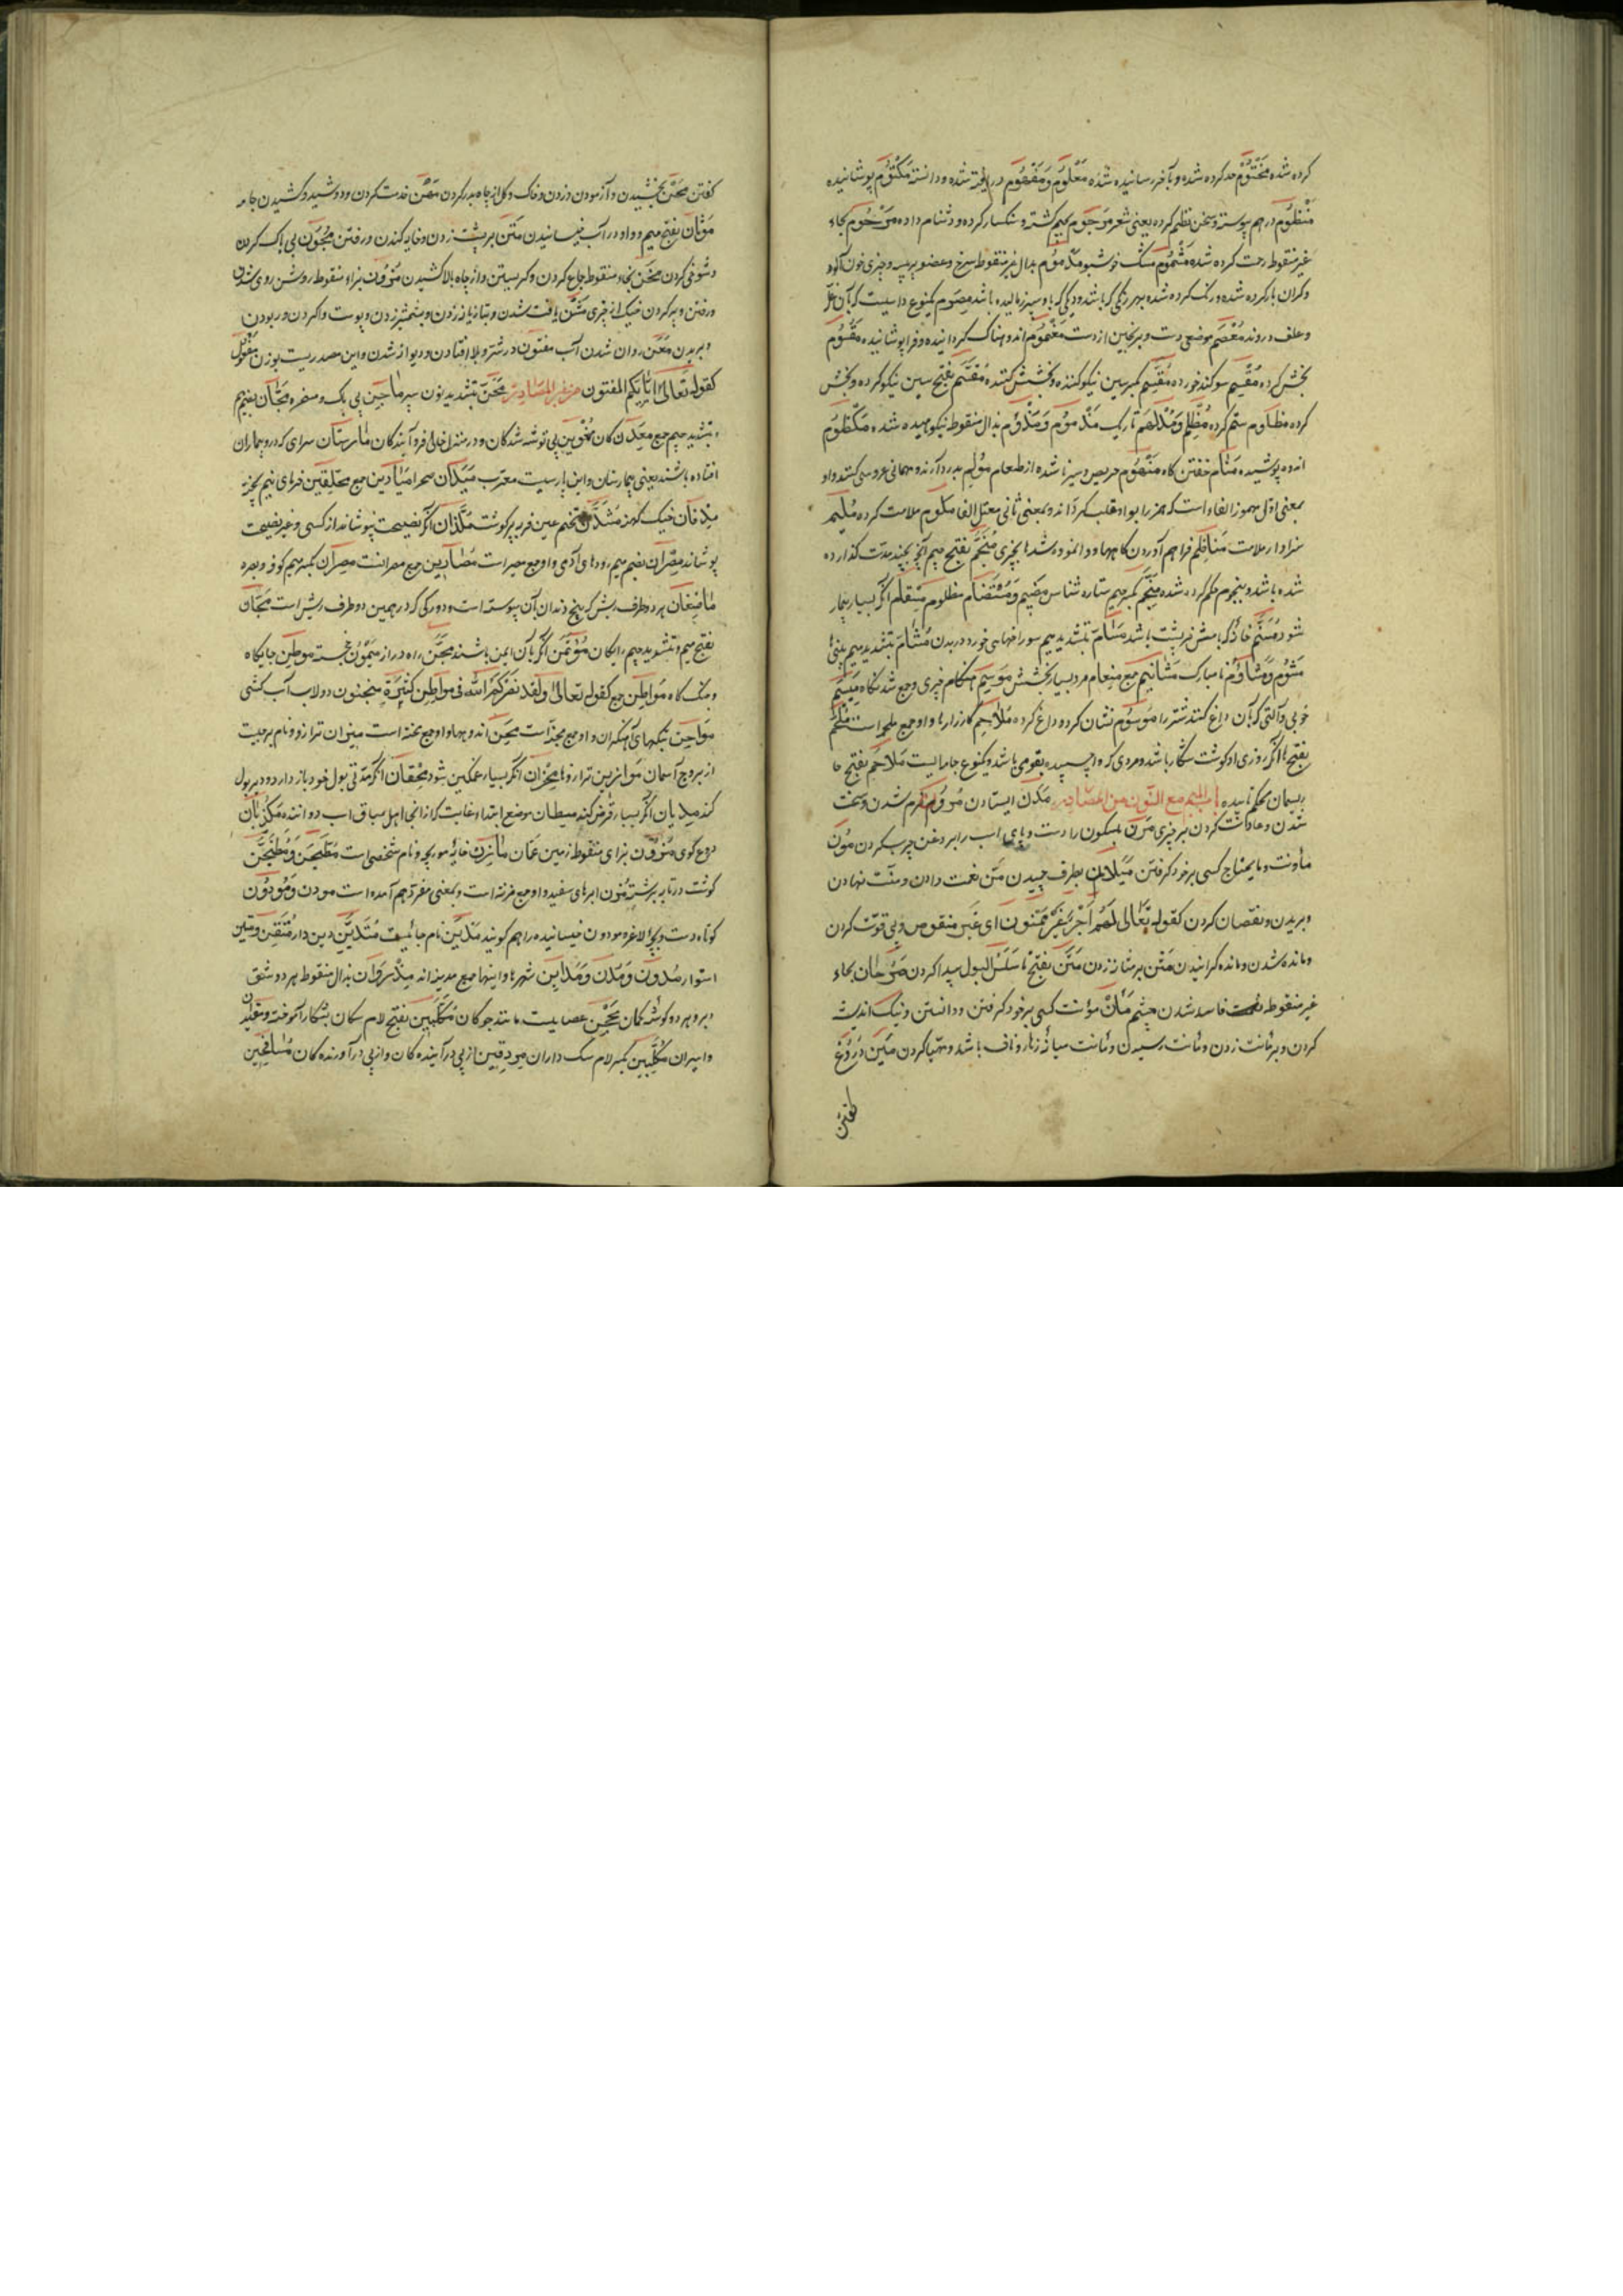 کرده شده مَخْتُوْم حد کرده شده و بآخر رسانیده شده مَعْلُوْم وَمَفْهُوْم دریافته شده و دانسته مَکْتُوْم پوشانیده
مَنْظُوْم در هم پیوسته و سخن نظم کرده یعنی شعر مَرجُوْم بجیم کشته و سنکسار کرده و دشنام داده مَرْحُوْم بحاء
غیر منقوطه رحمت کرده شده مَشْمُوْم مشک خوشبو مَدْمُوْم بدال غیر منقوطه سرخ و عضو پر پیه و چیزی خون آلود
و کران بار کرده شده و رنک کرده شده بهر رنکی که باشد و دیکی که باو سپرز مالیده باشد مِصْوَم یکنوع داسیست که بآن غله
و علف دروند مِعْصَم موضعی دست و برنجین از دست مَغْمُوْم اندوهناک کردانیده و فرا پوشانیده مَقْسُوْم
بخش کرده مُقْسِم سوکند خورده مُقَسِّم بکسر سین نیکو کننده و بخشش کننده مُقَسَّم بفتح سین نیکو کرده و بخش
کرده مظلوم ستم کرده مُظْلِم وَمُدْلَهِم تاریک مَذْمُوْم وَمَذْؤُم بذال منقوطه نکوهیده شده مَکْظُوْم
اندوه پوشیده مَنَام خفتن کاه مَنْهُوْم حریص و سیر نا شده از طعام مُؤلِم بدرد آرنده و مهمانی عروسی کننده و او
بمعنی اوّل مهموز الفاء است که همزه را بواو قلب کرده‌اند و بمعنی ثانی معتل الفا مَلُوم ملامت کرده مُلِیم
سزاوار ملامت مَنَاظِم فراهم آوردن کاهها و وانموده شدها بچیزی مُنَجَّم بفتح جیم آنچ بچند مدّت کذارده
شده باشد و بنجوم حکم کرده شده مُنَجِّم بکسر جیم ستاره شناس مَضِیم وَمُسْتَضَام مظلوم مِسْقَام آنکه بسیار بیمار
شود مُسَنَّم خانهٔ که بامش خرپشت باشد مَسَامّ بتشدید میم سوراخهای خورد در بدن مَشَامّ بتشدید میم بینیها
مَشُوْم وَمَشْاؤُم نا مبارک مَشَائِیم جمع مِنْعَام مرد بسیار بخشش مَوسِم هنکام چیزی و جمع شدنکاه مِیسَم
خوبی و آلتی که بآن داغ کنند شتر را مَوسُوْم نشان کرده و داغ کرده مَلَاحِم کارزارها و او جمع ملحمه است مُلْحَم
بفتح حا آنکه روزی او کوشت شکار باشد و مردی که وا چسپیده بقومی باشد و یکنوع جامه ایست مَلَاحَم بفتح حا
ریسمان محکم تابیده باب المیم مع النّون من المصادر مَکْن ایستادن مُرُوْن نرم شدن و سخت
شدن و عادت کردن بر چیزی مَرْن بسکون را دست و پای اسب را بروغن چرب کردن مَوْن
مأونت و ما یحتاج کسی بر خود کرفتن مَیَلَان بطرف چپیدن مَنّ نعمت دادن و منّت نهادن
و بریدن و نقصان کردن کقوله تَعَالی لَهُمْ اَجْرٌ غَیْرُ مَمْنُون ای غَیر منقوص و بی قوّت کردن
و مانده شدن و مانده کرانیدن مَثْن بر مثانه زدن مَثَن بفتح ثا سَلَسُ البول پیدا کردن مَرَحَان بحاء
غیر منقوطه فاسد شدن چشم مَأْن مؤنت کسی بر خود کرفتن و دانستن و نیک اندیشه
کردن و بر مأنت زدن و مأنت رسیدن و مأنت میانهٔ زهار و ناف باشد و مهیّا کردن مَین دُرُوْغ
کفتن
کفتن مَحْن بخشیدن و آزمودن و زدن و خاک و کل از چاه بدر کردن مَهْن خدمت کردن و دوشیدن و کشیدن جامه
مَوثَان بفتح میم و واو در آب خیسانیدن مَتْن بر پشت زدن و خایه کندن و رفتن مُجُوْن بی باک کردن
و شوخی کردن مَخْن بخاء منقوطه جماع کردن و کریستن و از چاه بالا کشیدن مُزُوْن بزاء منقوطه روشن روی شدن
و رفتن و پر کردن خیک از چیزی مَشْن یافت شدن و بتازیانه زدن و بشمشیر زدن و پوست وا کردن و ربودن
و بریدن مَعْن روان شدن آب مفتون در شتر و بلا افتادن و دیوانه شدن و این مصدریست بوزن مَفْعُول
کقوله تعالی بِاَیِّکم المفتون من غیر المصادر مِجَنّ بتشدید نون سپر مَاجِن بی باک و مسخره مُجَّان بضم میم
و بتشدید جیم جمع مَعْدِن کان مُقْوِین بی توشه شدکان و در منزل خالی فرو آیندکان مارستان سرای که درو بیماران
افتاده باشند یعنی بیمارستان و این پارسیست معرّب مَیدَان صحرا مَیَادِین جمع مُحَلْقِین خرمای نیم پخته
مِدْفَان خیک کهنه مُشَدَّن ضخیم عین فربه پر کوشت
پوشاند مُصْرَان بضم میم رودهای آدمی و او جمع مصیر است مَصَارِین جمع مصرانست مِصْرَان بکسر میم کوفه و بصره
مَاضِغَان هر دو طرف ریش که بیخ دندان بآن پیوسته است و دو رکی که در همین دو طرف ریش است مَجَّان
بفتح میم و بتشدید جیم رایکان مُؤتَمَن آنکه بآن ایمن باشند مِجَنّ راه دراز مَیْمُوْن خجسته مَوطِن جایکاه
و جنک کاه مَوَاطِن جمع کقوله تعالی وَلَقَد نَصَرَکُمُ اللّه فی مَوَاطِن کَثِیْرَة منجنون دولاب آب کشی
مَوَاجِن تنکهای آهنکران و او جمع میجنه است مِحَن اندوهها و او جمع محنه است میزان ترازو و نام برجیست
از بروج آسمان مَوَازِین ترازوها مِحْزَان آنکه بسیار غمکین شود مِحْقَان آنکه مدّتی بول خود باز دارد و دیر بول
کند مِدیَان آنکه بسیار قرض کند میطان موضع ابتدا و غایت که از آنجا اهل سباق اسب دوانند مَکْذُبَان
دروغ کوی مَزُوْن بزای منقوطه زمین عُمَان مَازِن خایهٔ مورچه و نام شخصی است مُطَجَّن وَمُطَیْجَن
کوشت در تابه برشته مُزْن ابرهای سفید و او جمع مزنه است و بمعنی مفرد هم آمده است مودن وَمَودُوْن
کوتاه دست و بچهٔ لاغر و مودون خیسانیده را هم کویند مَدْیَن نام جائیست مُتَدَیِّن دین دار مُتْقَن وَمَتِین
استوار مُدُوْن وَمُدُن وَمَدَایِن شهرها و اینها جمع مدینه اند مِذْرَوَان بذال منقوطه هر دو شق
دبر و هر دو کوشهٔ کمان مِحْجَن عصاییست مانند چوکان مُکَلَّبِین بفتح لام سکان بشکار آموخته و مقیّدان
و اسیران مُکَلِّبِین بکسر لام سک داران مردفین از پی در آیندکان و از پی در آورندکان مُسَافِحِین